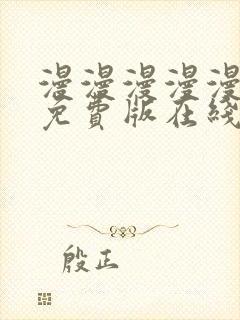 漫漫漫漫漫
免费版在綫
殷正